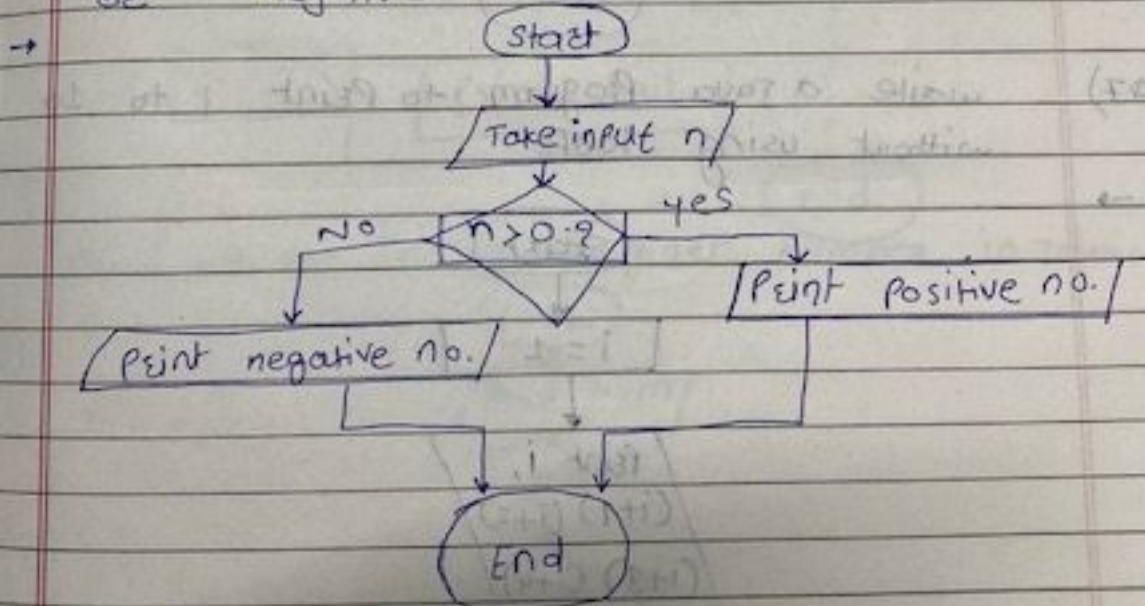 →
Start
Take input n
n>0.?
No
yes
Print positive no.
Print negative no.
End